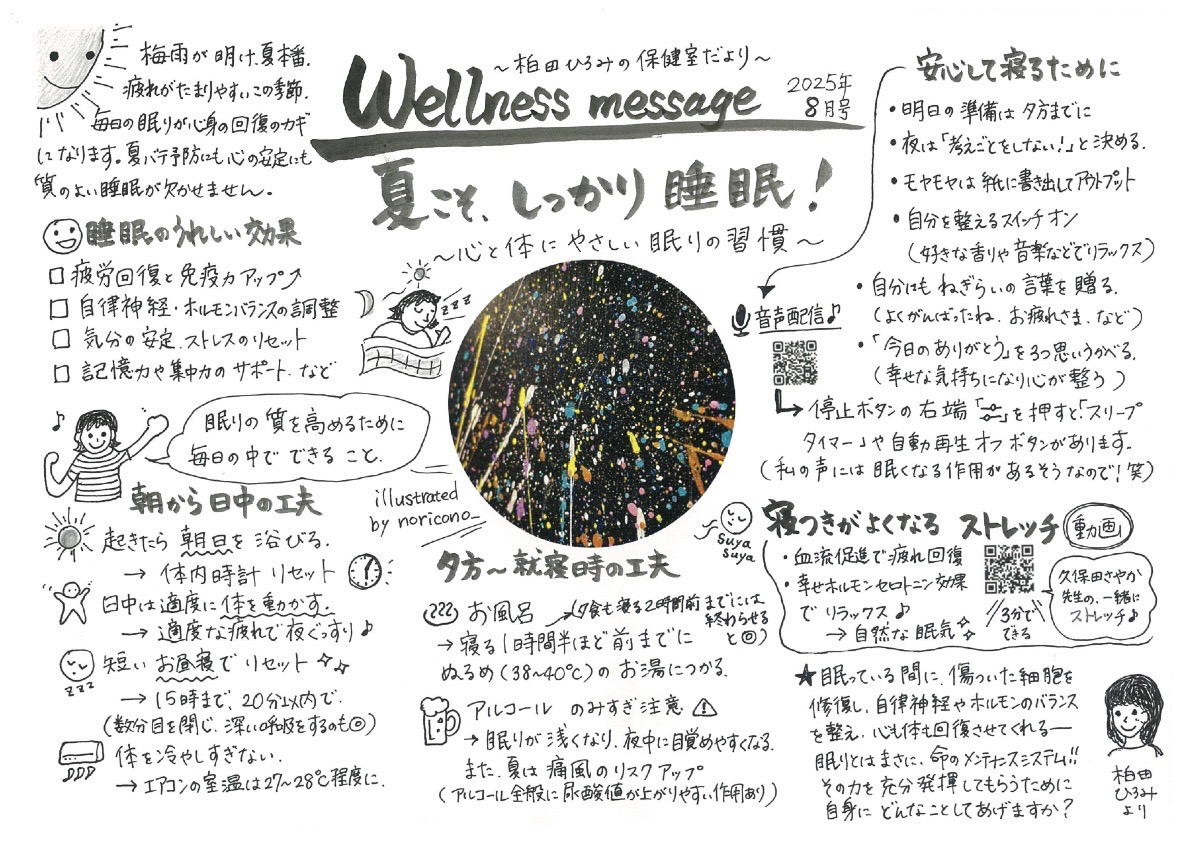 梅雨が明け、夏本番。
疲れがたまりやすいこの季節、
毎日の眠りが心身の回復のカギ
になります。夏バテ予防にも心の安定にも
質のよい睡眠が欠かせません。
〜柏田ひろみの保健室だより〜
Wellness message
2025年
8月号
夏こそ、しっかり睡眠!
〜心と体にやさしい眠りの習慣〜
睡眠のうれしい効果
□ 疲労回復と免疫力アップ⤴
□ 自律神経・ホルモンバランスの調整
□ 気分の安定、ストレスのリセット
□ 記憶力や集中力のサポート など
zzz
♪
眠りの質を高めるために
毎日の中でできること。
illustrated
by noricono_
朝から日中の工夫
起きたら 朝日を浴びる。
→ 体内時計 リセット
日中は適度に体を動かす。
→ 適度な疲れで夜ぐっすり♪
短いお昼寝でリセット
zzz
→ 15時まで、20分以内で。
(数分目を閉じ、深い呼吸をするのも◎)
体を冷やしすぎない。
→ エアコンの室温は27〜28℃程度に。
夕方〜就寝時の工夫
お風呂
(夕食も寝る2時間前までには
終わらせる
と◎)
→ 寝る1時間半ほど前までに
ぬるめ(38〜40℃)のお湯につかる。
アルコール のみすぎ注意 ⚠
→ 眠りが浅くなり、夜中に目覚めやすくなる。
また、夏は痛風のリスクアップ
(アルコール全般に尿酸値が上がりやすい作用あり)
安心して寝るために
・明日の準備は夕方までに
・夜は「考えごとをしない!」と決める。
・モヤモヤは紙に書き出してアウトプット
・自分を整えるスイッチオン
(好きな香りや音楽などでリラックス)
・自分にもねぎらいの言葉を贈る。
(よくがんばったね、お疲れさま、など)
・「今日のありがとう」を3つ思いうかべる。
(幸せな気持ちになり心が整う)
音声配信♪
→ 停止ボタンの右端「」を押すと「スリープ
タイマー」や自動再生オフボタンがあります。
(私の声には眠くなる作用があるそうなので!笑)
suya
suya
寝つきがよくなる ストレッチ 動画
・血流促進で疲れ回復
・幸せホルモンセロトニン効果
でリラックス♪
→ 自然な眠気
3分で
できる
久保田さやか
先生の、一緒に
ストレッチ♪
★眠っている間に、傷ついた細胞を
修復し、自律神経やホルモンのバランス
を整え、心も体も回復させてくれる―
眠りとはまさに、命のメンテナンスシステム!!
その力を充分発揮してもらうために
自身にどんなことしてあげますか?
柏田
ひろみ
より